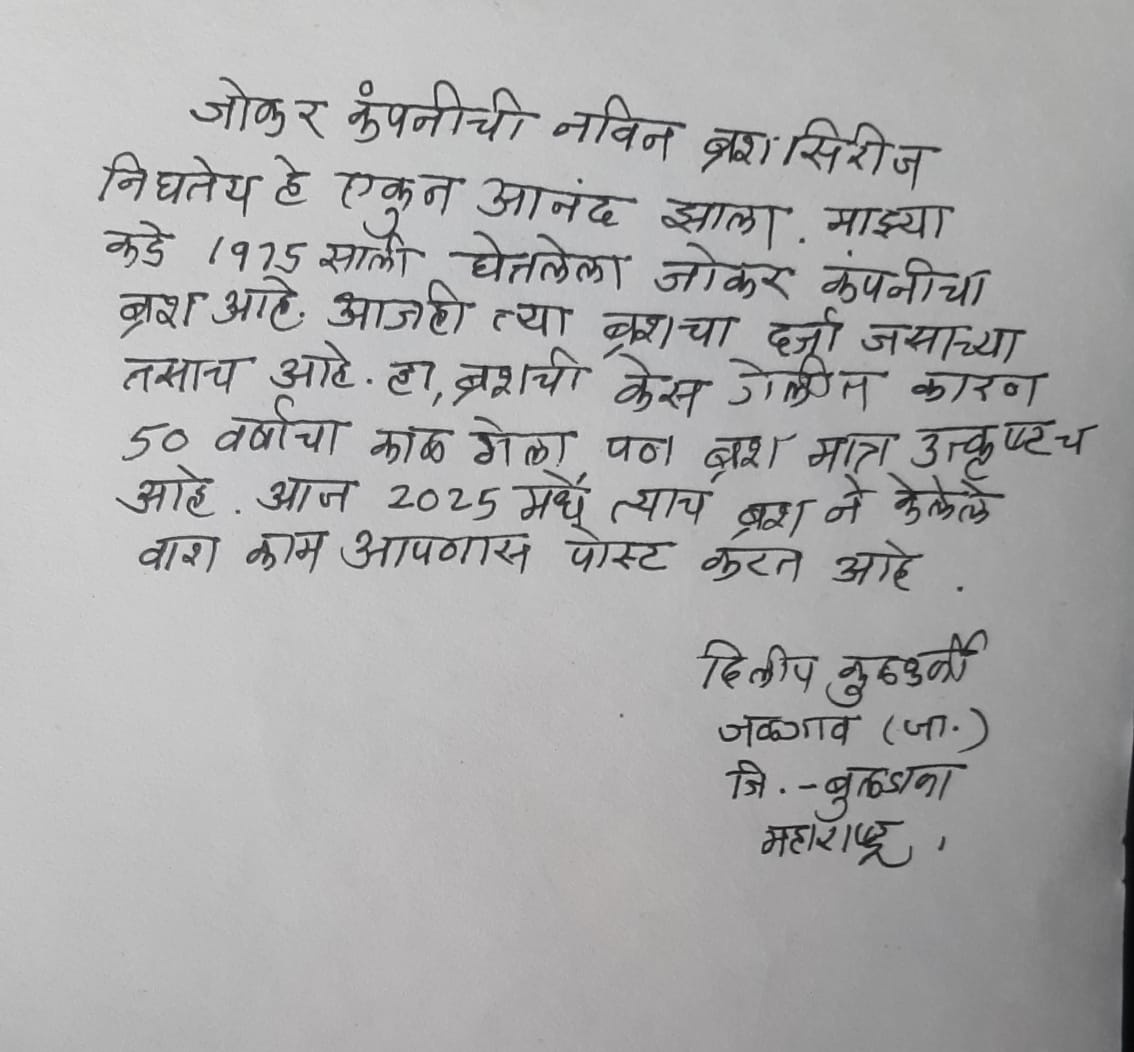 जोकर कंपनीची नविन ब्रश सिरीज
निघतेय हे एकुन आनंद झाला. माझ्या
कडे 1975 साली घेतलेला जोकर कंपनीचा
ब्रश आहे. आजही त्या ब्रशचा दर्जा जसाच्या
तसाच आहे. हा, ब्रशची केस गेलीत कारण
50 वर्षाचा काळ गेला पण ब्रश मात्र उत्कृष्टच
आहे. आज 2025 मधे त्याच ब्रश ने केलेले
वाश काम आपणास पोस्ट करत आहे.
दिलीप कुळकर्णी
जळगाव (जा.)
जि. - बुलडाणा
महाराष्ट्र.